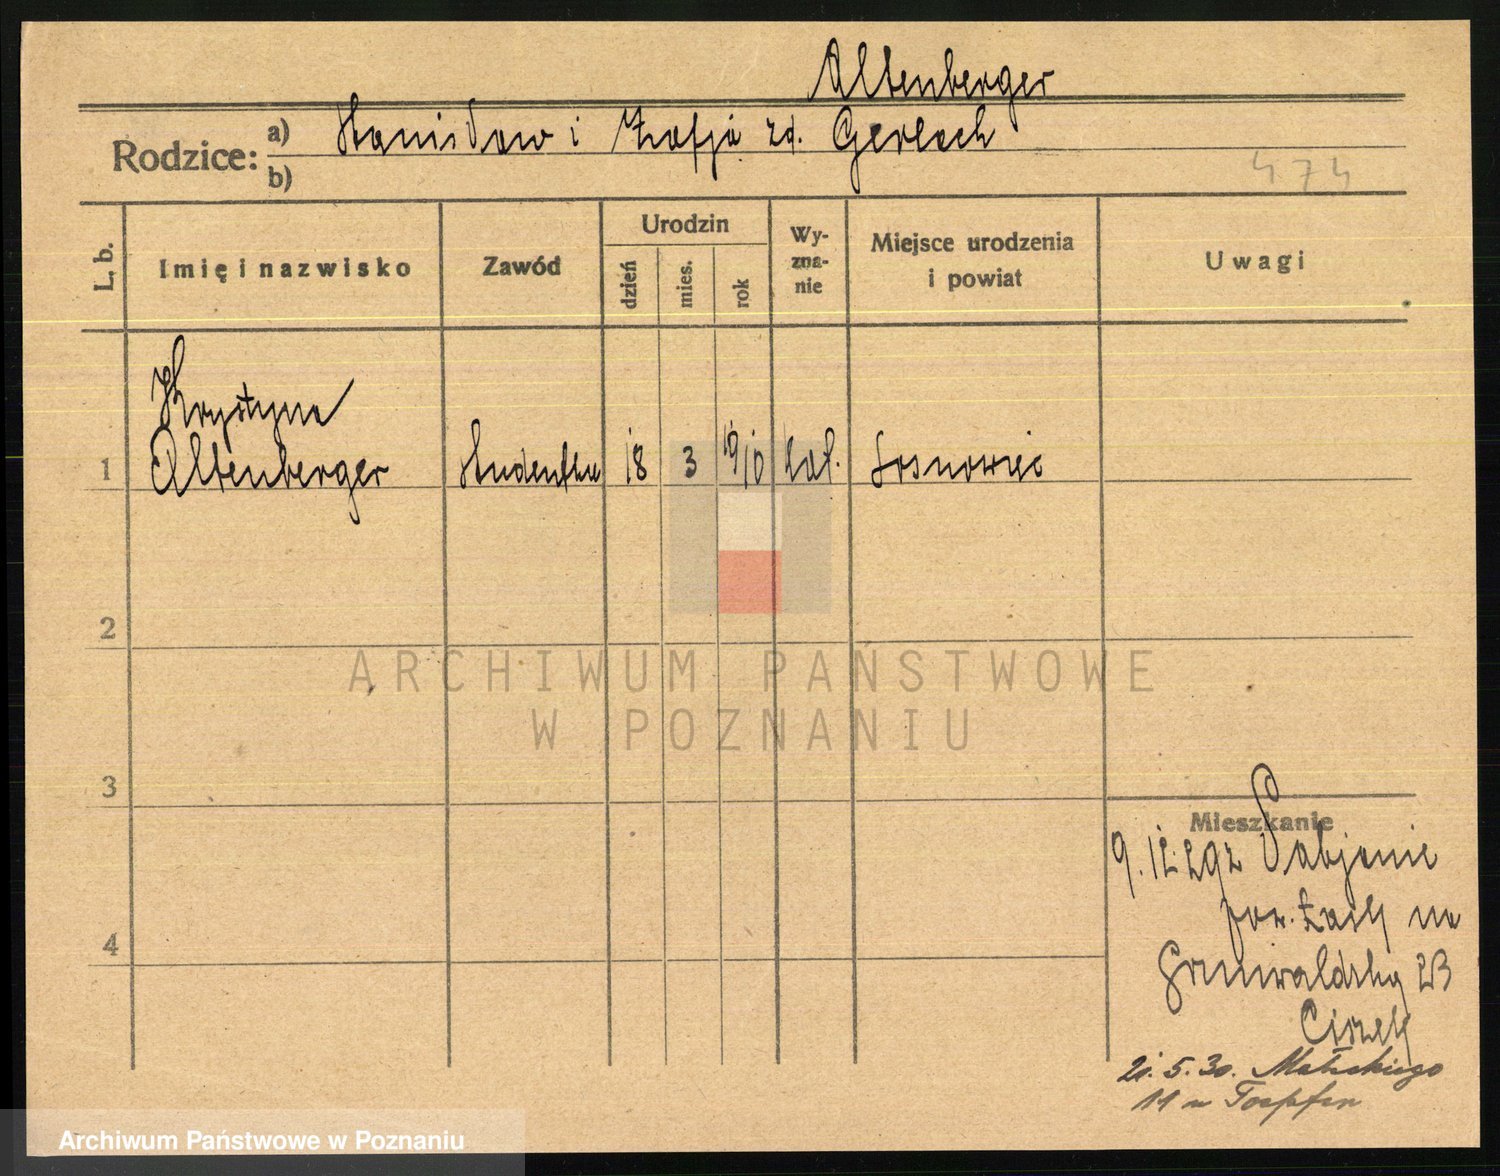 Altenberger
Rodzice: a) Stanisław i Zofja zd. Gerlach
b)
474
L. b.
Imię i nazwisko
Zawód
Urodzin
dzień
mies.
rok
Wy-
zna-
nie
Miejsce urodzenia
i powiat
Uwagi
Krystyna
1 Altenberger studentka 18 3 1910 kat. Sosnowiec
2
ARCHIWUM PAŃSTWOWE
W POZNANIU
3
Mieszkanie
9. 12. 29 z Pabjanic
pow. Łask na
Grunwaldzką
4
21. 5. 30. Matejkiego
11 u
Archiwum Państwowe w Poznaniu